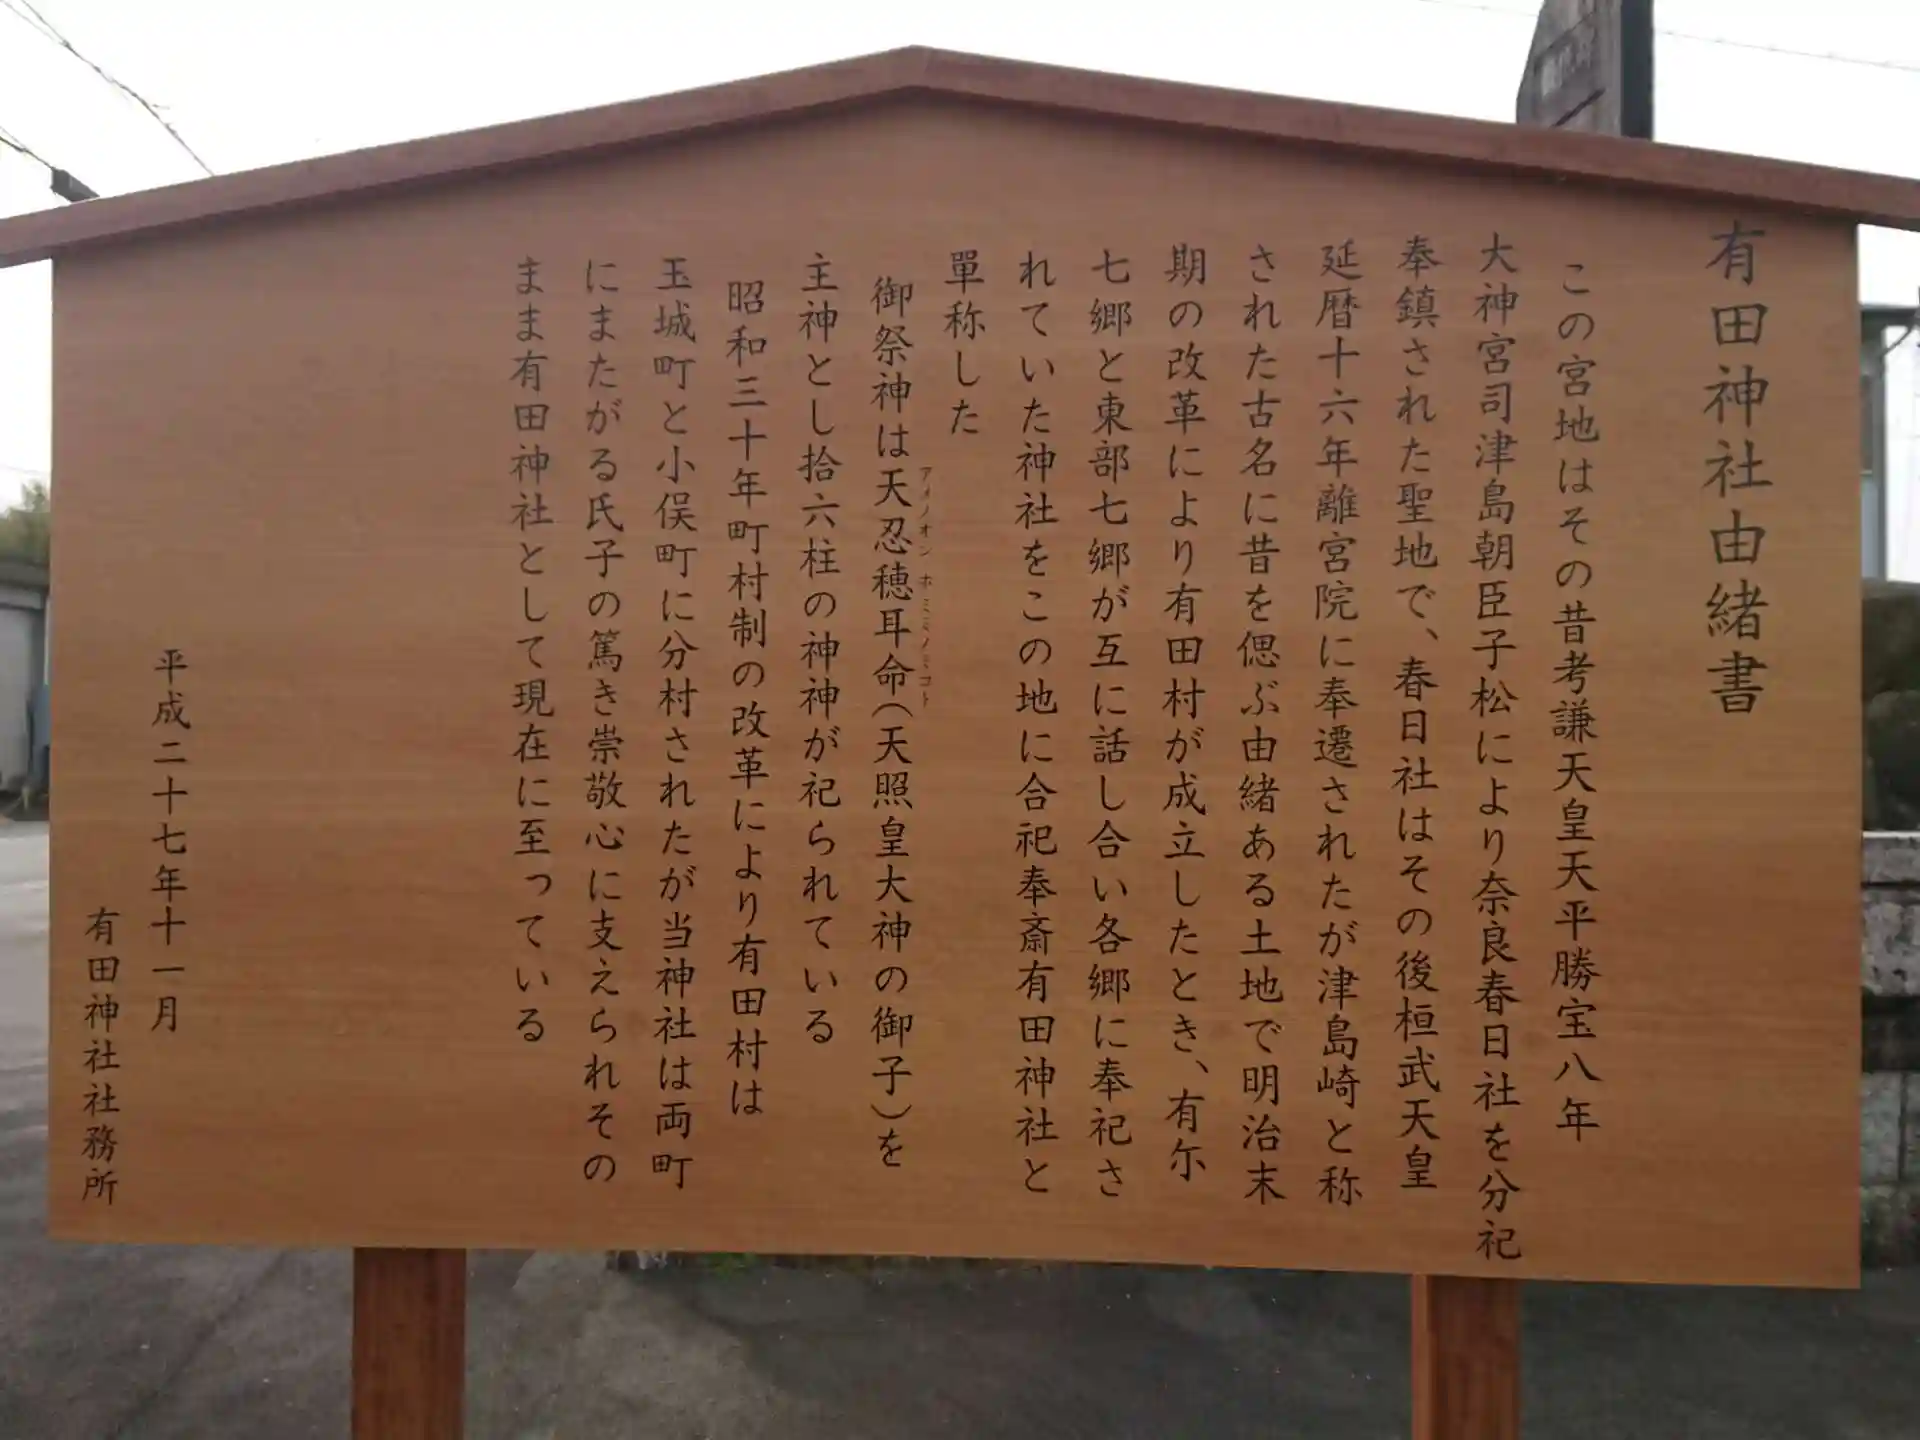 有田神社由緒書
この宮地はその昔考謙天皇天平勝宝八年
大神宮司津島朝臣子松により奈良春日社を分祀
奉鎮された聖地で、春日社はその後桓武天皇
延暦十六年離宮院に奉遷されたが津島崎と称
された古名に昔を偲ぶ由緒ある土地で明治末
期の改革により有田村が成立したとき、有尓
七郷と東部七郷が互に話し合い各郷に奉祀さ
れていた神社をこの地に合祀奉斎有田神社と
單称した
御祭神は天忍穂耳命（天照皇大神の御子）を
アメノオシホミミノミコト
主神とし拾六柱の神神が祀られている
昭和三十年町村制の改革により有田村は
玉城町と小俣町に分村されたが当神社は両町
にまたがる氏子の篤き崇敬心に支えられその
まま有田神社として現在に至っている
平成二十七年十一月
有田神社社務所